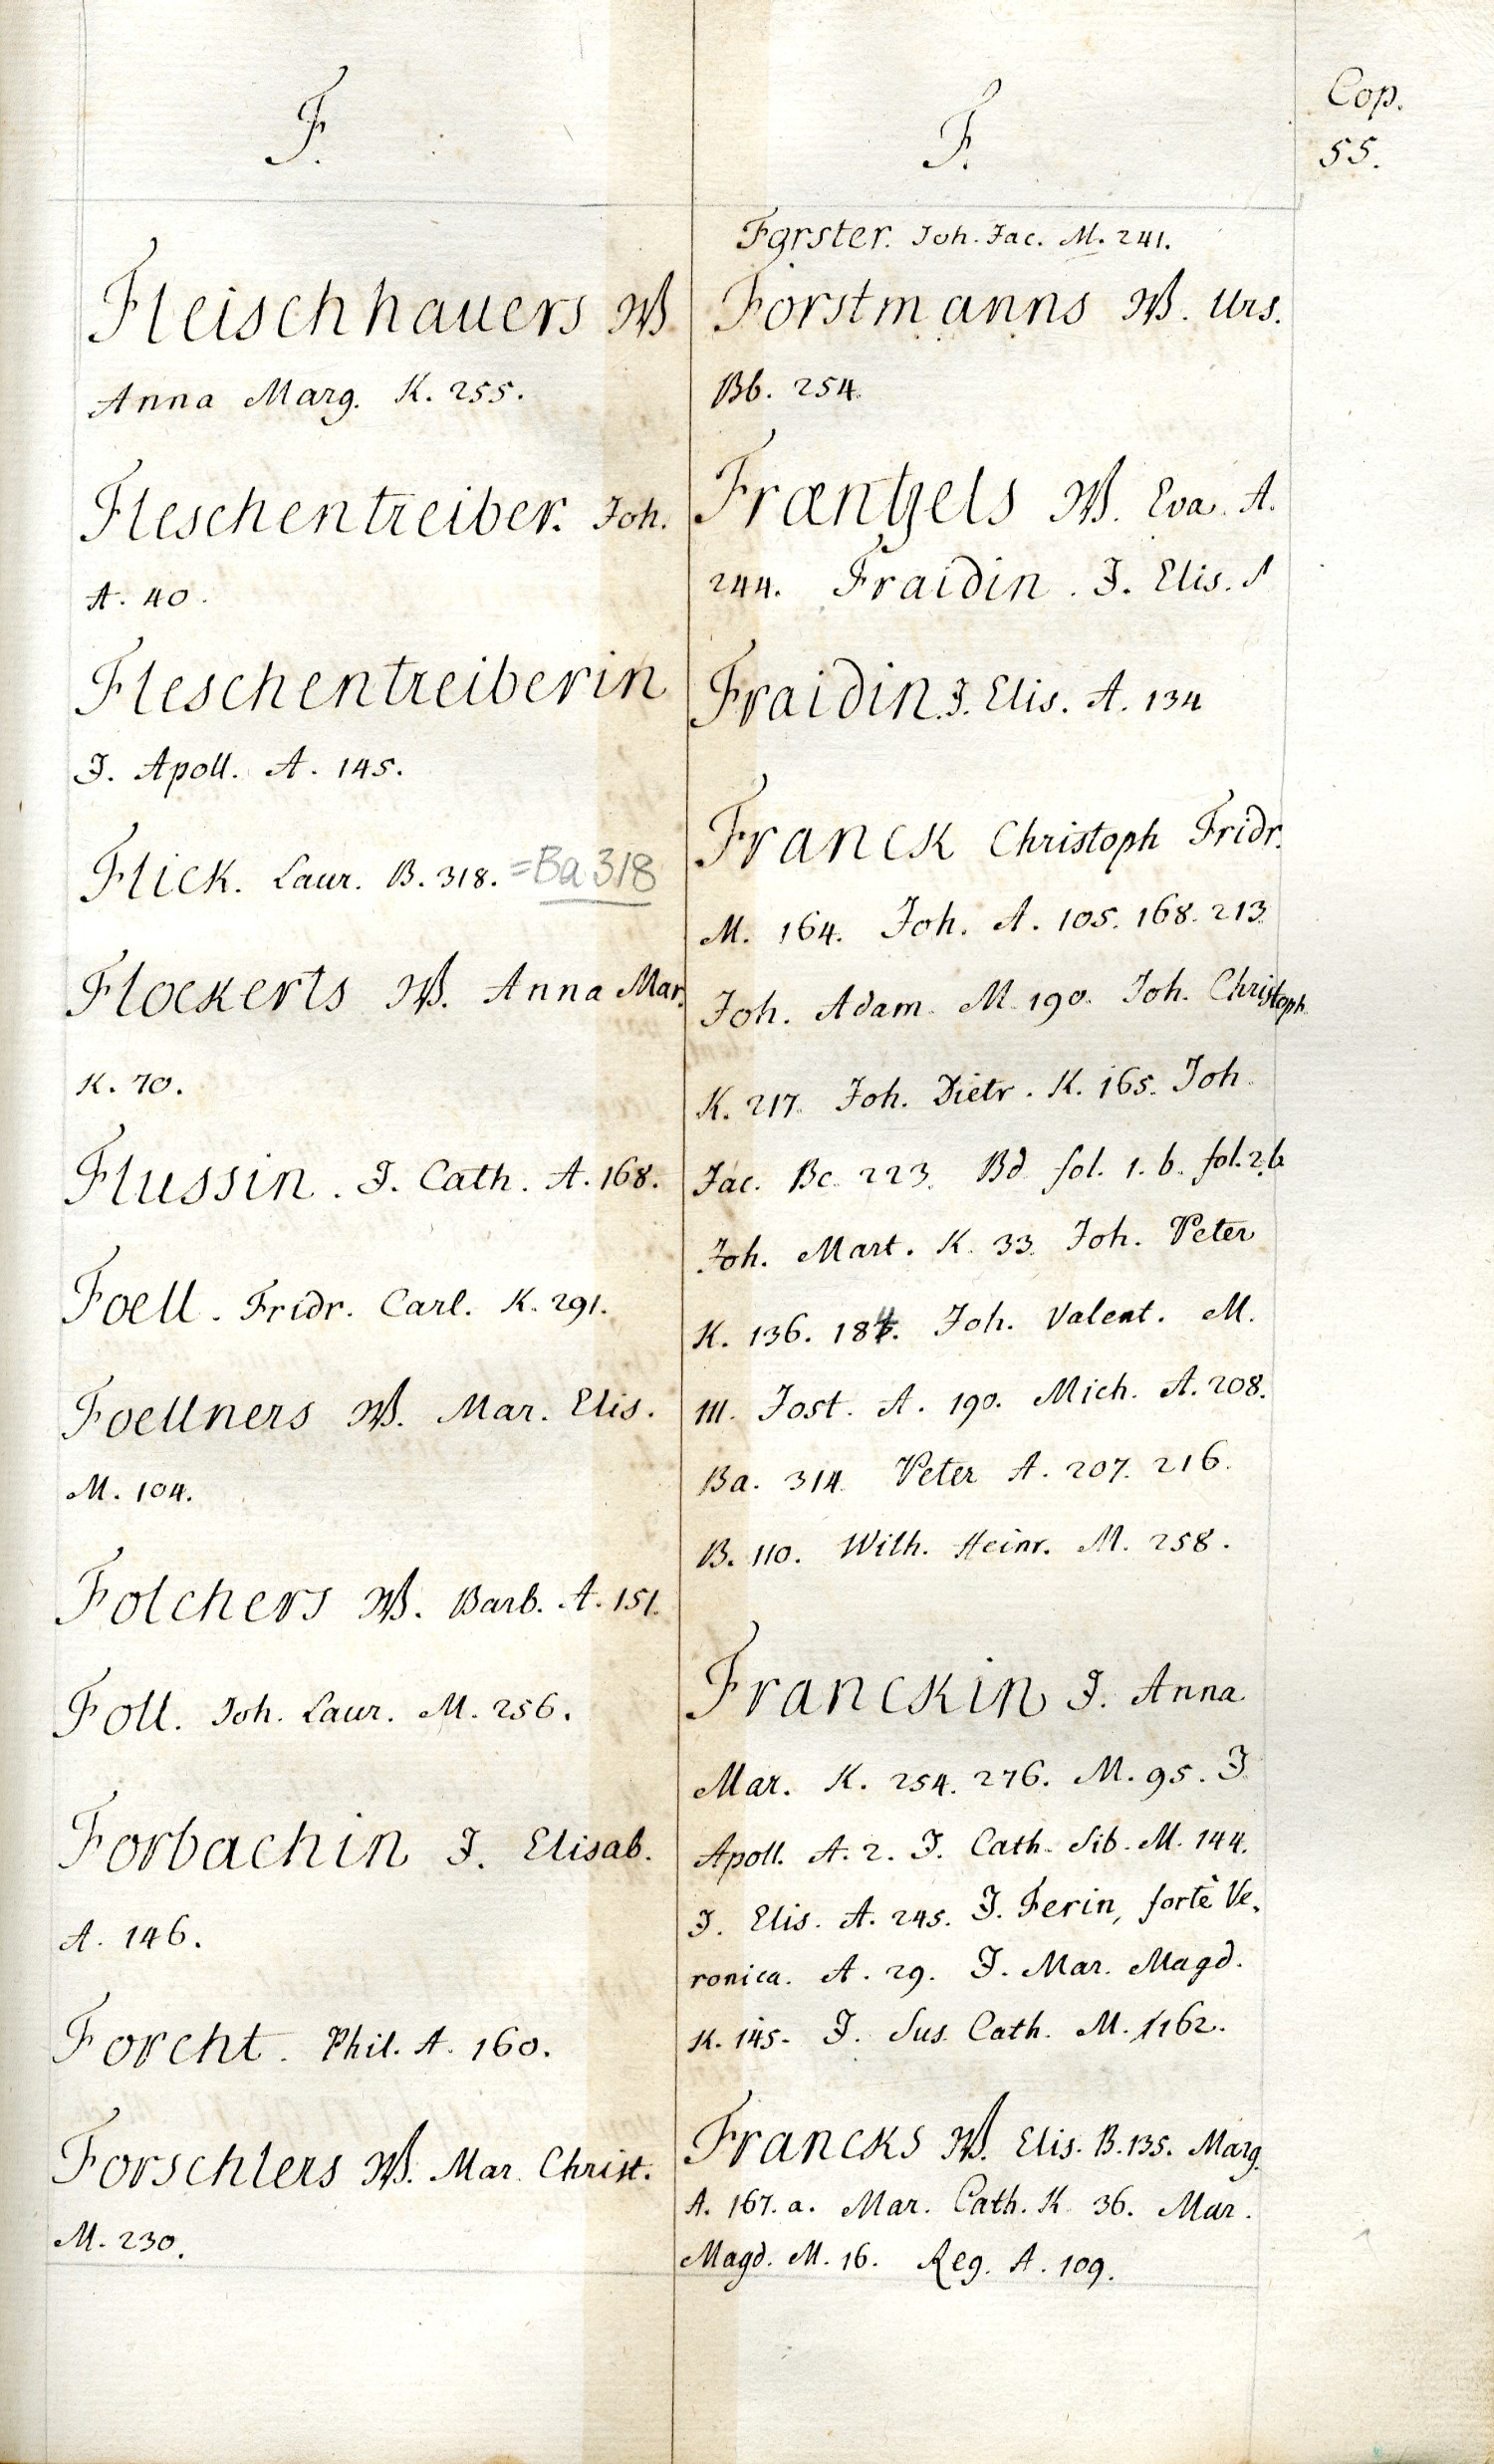 Cop.
55.
F.
Fleischhauers W
Anna Marg. K. 255.
Fleschentreiber. Joh.
A. 40.
Fleschentreiberin
J. Apoll. A. 145.
Flick. Laur. B. 318. =Ba 318
Floekerts W. Anna Mar.
K. 70.
Flussin. J. Cath. A. 168.
Foell. Fridr. Carl. K. 291.
Foellners W. Mar. Elis.
M. 104.
Folchers W. Barb. A. 151.
Foll. Joh. Laur. M. 256.
Forbachin J. Elisab.
A. 146.
Forcht. Phil. A. 160.
Forschlers W. Mar. Christ.
M. 230.
F.
Forster. Joh. Jac. M. 241.
Forstmanns W. Urs.
Bb. 254.
Fræntzels W. Eva. A.
244. Fraidin. J. Elis.
Fraidin. J. Elis. A. 134
Franck Christoph Fridr.
M. 164. Joh. A. 105. 168. 213.
Joh. Adam. M. 190. Joh. Christoph
K. 217. Joh. Dietr. K. 165. Joh.
Jac. Bc. 223. Bd fol. 1. b. fol. 2. b
Joh. Mart. K. 33. Joh. Peter
K. 136. 184. Joh. Valent. M.
111. Jost. A. 190. Mich. A. 208.
Ba. 314. Peter A. 207. 216.
B. 110. Wilh. Heinr. M. 258.
Franckin J. Anna
Mar. K. 254. 276. M. 95. J.
Apoll. A. 2. J. Cath. Sib. M. 144.
J. Elis. A. 245. J. Ferin, fortè Ve,
ronica. A. 29. J. Mar. Magd.
K. 145. J. Sus. Cath. M. 162.
Francks W. Elis. B. 135. Marg.
A. 167. a. Mar. Cath. K. 36. Mar.
Magd. M. 16. Reg. A. 109.